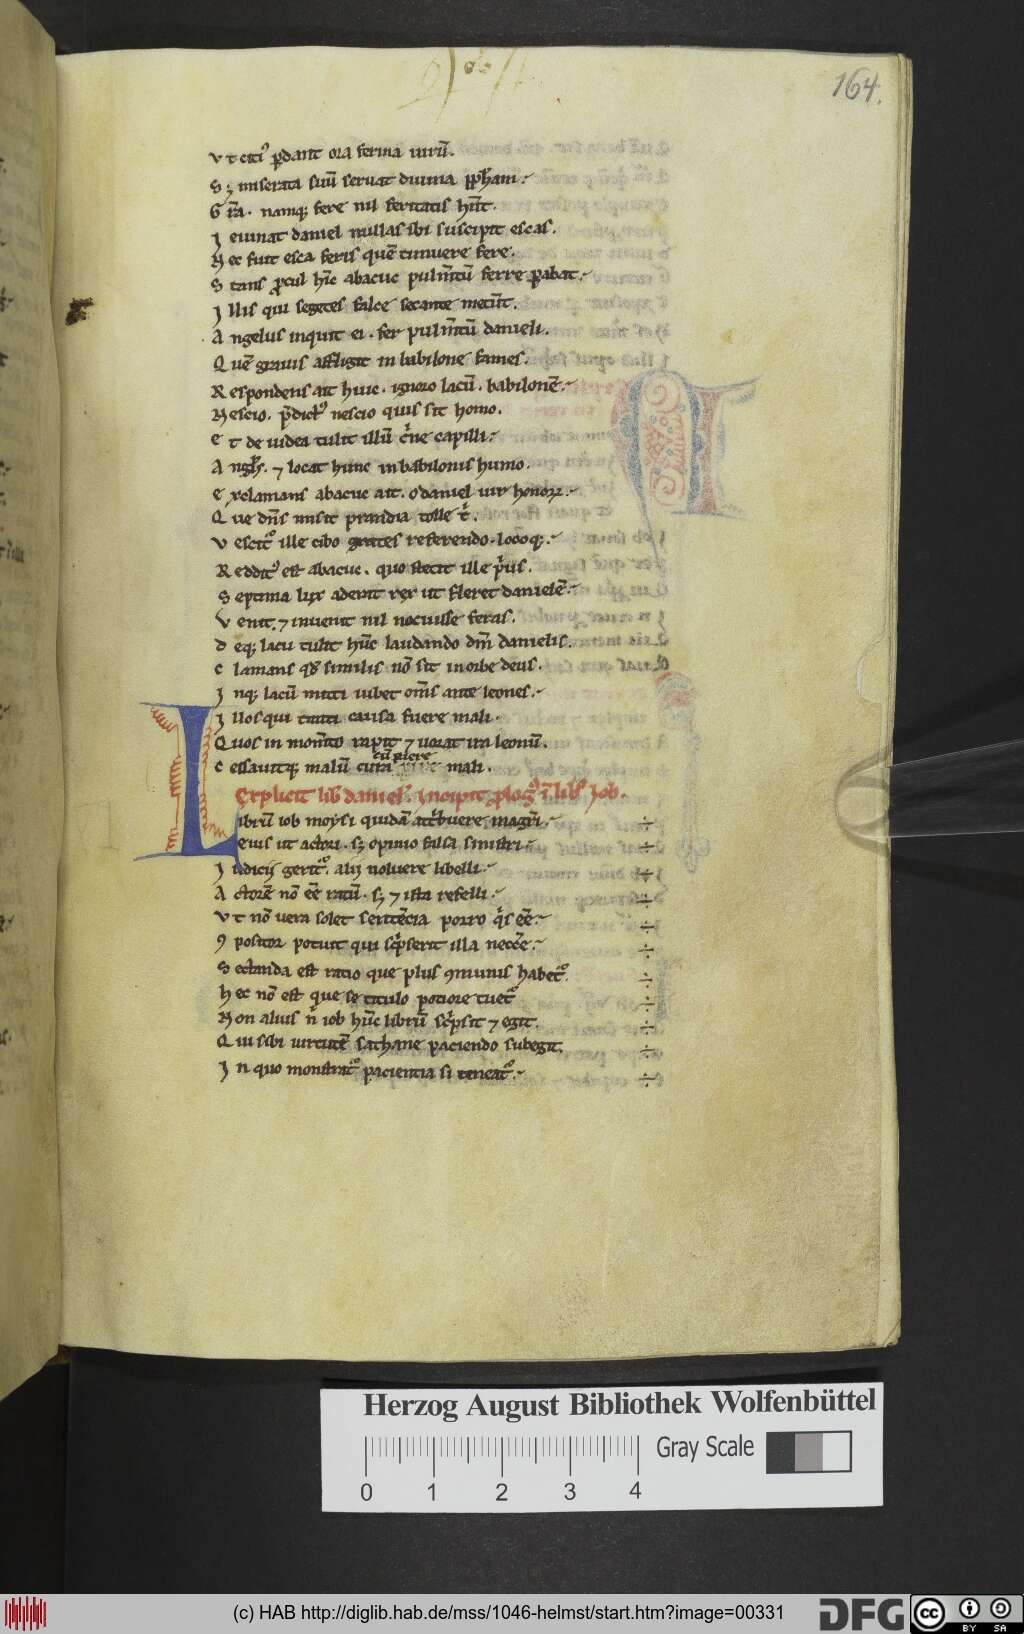 164.
Vt citiꝰ ꝑdant ora ferina uirū.
Sꝫ miserata suū seruat diuina ꝓpham.
Gr̄a. namqꝫ fere nil feritatis hn̄t.
Ieiunat daniel nullas sibi suscipit escas.
Nec fuit esca feris quē timuere fere.
Stans ꝓcul hīc abacuc pulmtū ferre ꝑabat.
Illis qui segetes falce secante metūt.
Angelus inquit ei. fer pulmtū danieli.
Quē grauis affligit in babilone fames.
Respondens ait huic. ignoro lacū. babilonē.
Nescio. p̄dictꝰ nescio quis sit homo.
Et de iudea tulit illū c̄ne capilli.
Angl̄s. ⁊ locat hunc in babilonis humo.
Exclamans abacuc ait. o daniel uir honoꝝ.
Que dn̄s misit prandia tolle t̄.
Vescitᷣ ille cibo grates referendo. locoqꝫ.
Redditᷣ est abacuc. quo stetit ille pͥus.
Septima lux aderit rex ut fleret danielē.
Venit. ⁊ inuenit nil nocuisse feras.
Deqꝫ lacu tulit hūc laudando dm̄ danielis.
Clamans qd̄ similis nō sit in orbe deus.
Inqꝫ lacū mitti iubet om̄s ante leones.
Illos qui tanti causa fuere mali.
Quos in momto rapit ⁊ uorat ira leonū.
Cessauitqꝫ malū cura mali.
Explicit lib̄ daniel. Incipit ꝓlogᷣ ī lib̄ Iob.
Librū iob moysi quidā att̄buere magr̄i.
eius ut actori. sꝫ opinio falsa sinistri.
Iudicij geritᷣ. alij noluere libelli.
Actorē nō eē ratū. sꝫ ⁊ ista refelli.
Vt nō uera solet sentēcia porro qͥs eē.
ꝯpositor potuit qui scͥpserit illa necc̄e.
Sectanda est ratio que plus ꝯmunis habetᷣ.
Hec nō est que se titulo potiore tuetᷣ
Non alius n̄ iob hūc librū scͥpsit ⁊ egit.
Qui sibi uirtutē sathane paciendo subegit.
In quo monstratᷣ pacientia si teneatᷣ.
Herzog August Bibliothek Wolfenbüttel
Gray Scale
0 1 2 3 4
(c) HAB http://diglib.hab.de/mss/1046-helmst/start.htm?image=00331
DFG
cc BY SA